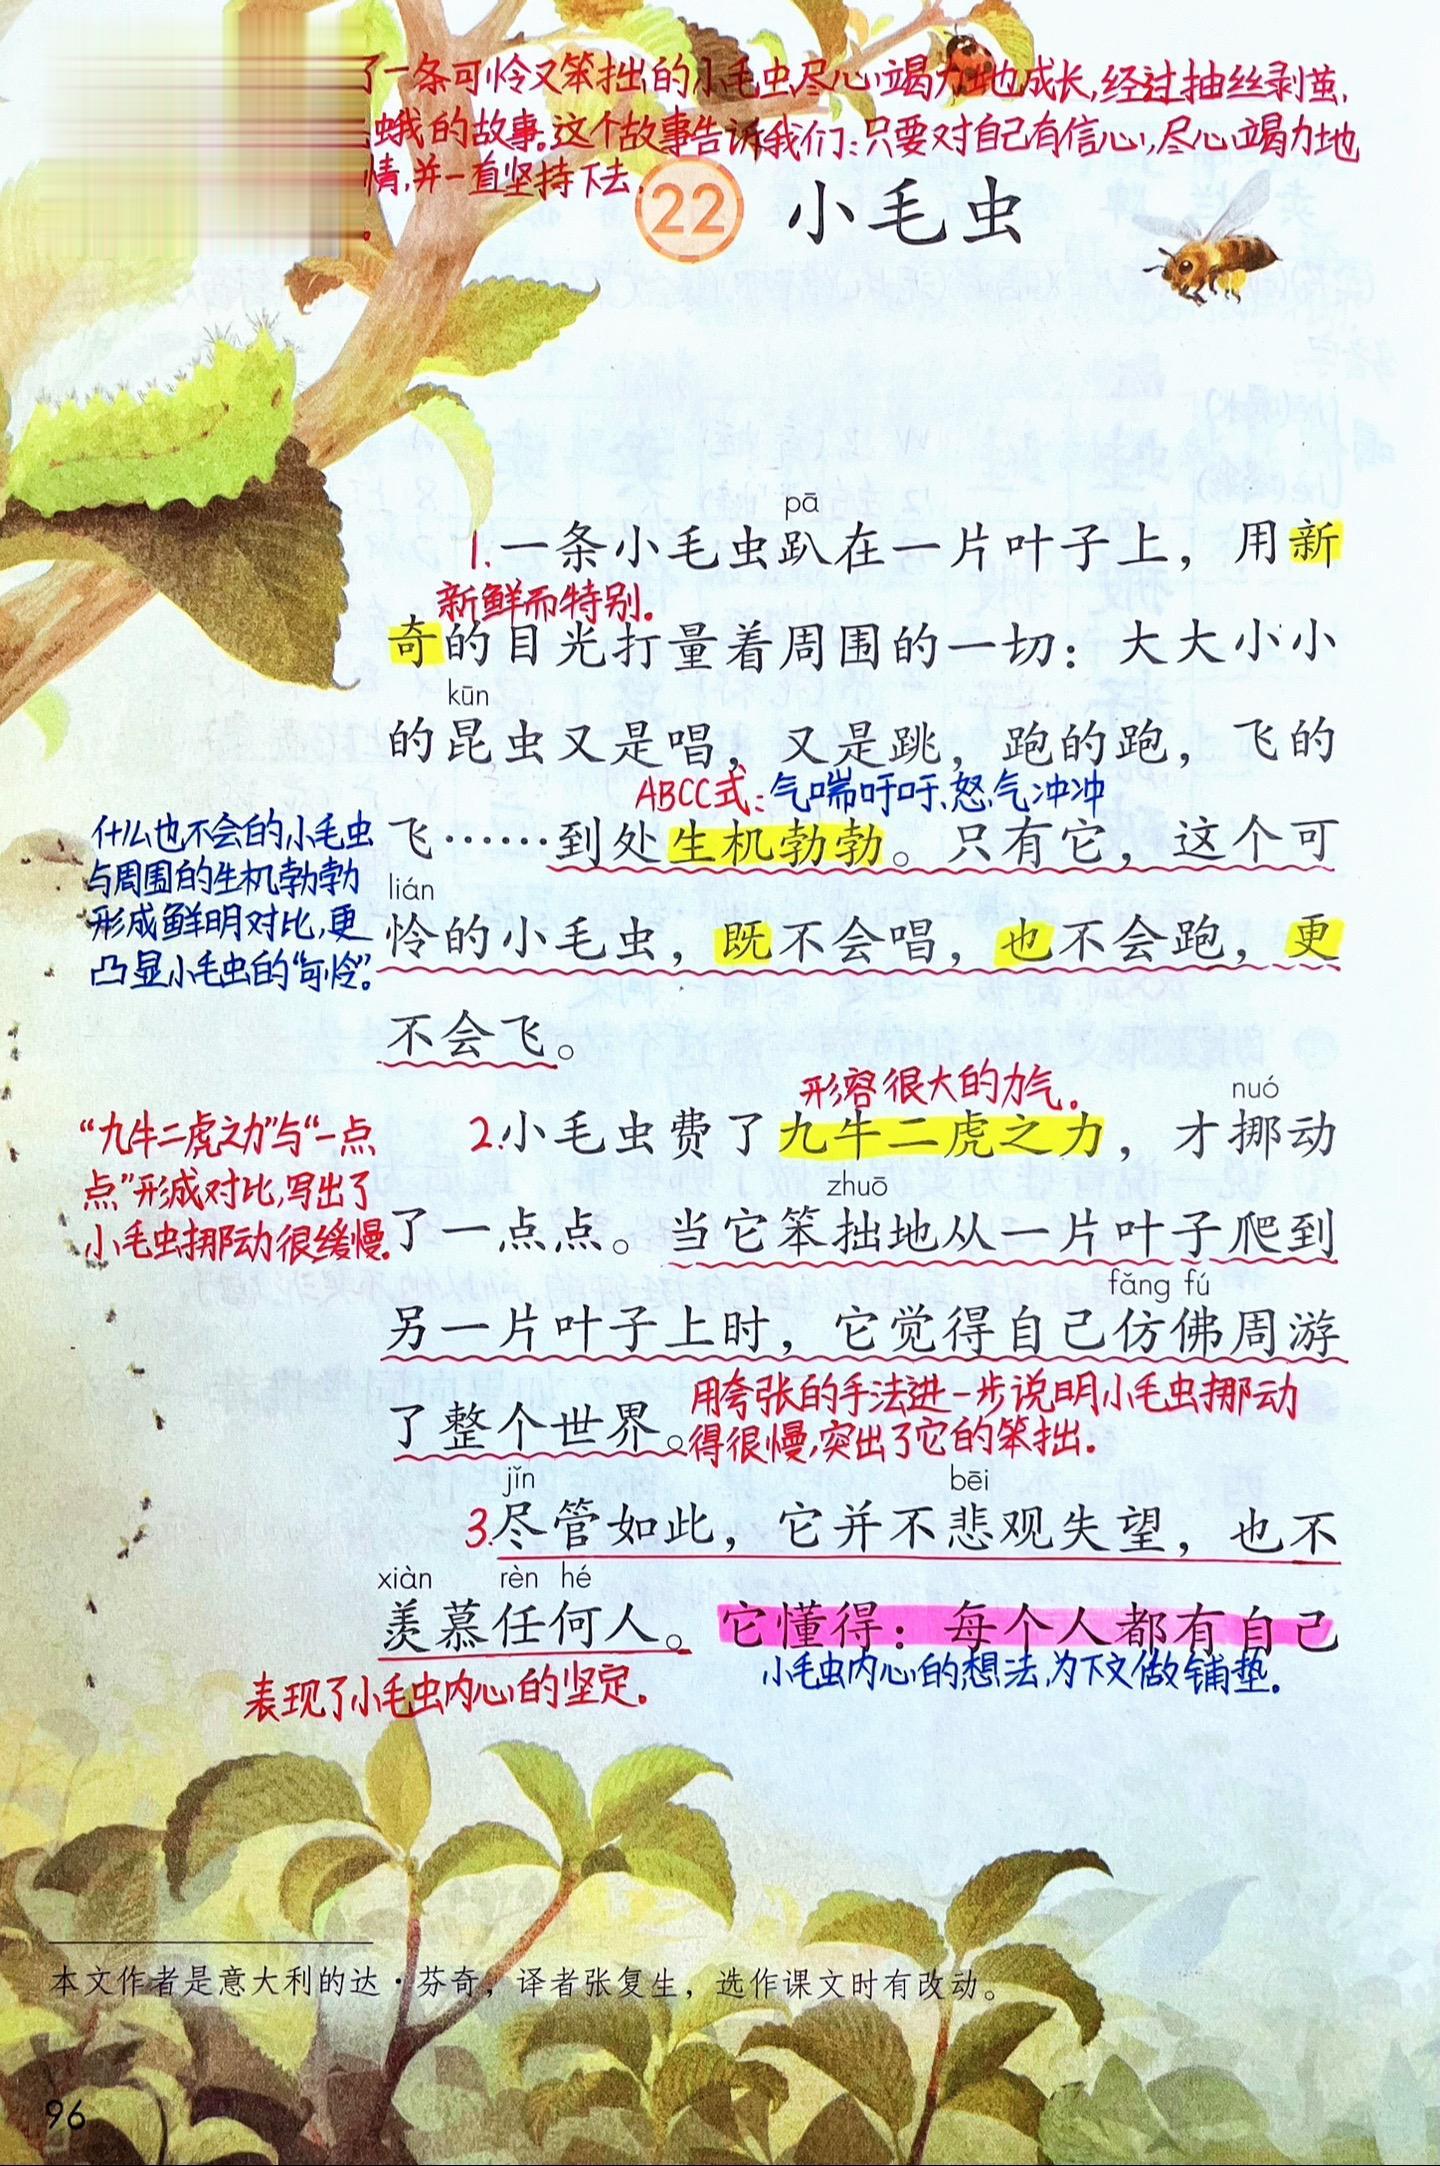 了一条可怜又笨拙的小毛虫尽心竭力地成长,经过抽丝剥茧,
蛾的故事。这个故事告诉我们:只要对自己有信心,尽心竭力地
情,并一直坚持下去
。
22 小毛虫
pā
1.一条小毛虫趴在一片叶子上，用新
新鲜而特别。
奇的目光打量着周围的一切：大大小小
kūn
的昆虫又是唱，又是跳，跑的跑，飞的
ABCC式:气喘吁吁、怒气冲冲
飞……到处生机勃勃。只有它，这个可
什么也不会的小毛虫
与周围的生机勃勃
形成鲜明对比,更
凸显小毛虫的“可怜”。
lián
怜的小毛虫，既不会唱，也不会跑，更
不会飞。
形容很大的力气。
nuó
2.小毛虫费了九牛二虎之力，才挪动
“九牛二虎之力”与“一点
点”形成对比,写出了
小毛虫挪动很缓慢.
zhuō
了一点点。当它笨拙地从一片叶子爬到
fǎng fú
另一片叶子上时，它觉得自己仿佛周游
了整个世界。
用夸张的手法进一步说明小毛虫挪动
得很慢,突出了它的笨拙.
jǐn bēi
3.尽管如此，它并不悲观失望，也不
xiàn rèn hé
羡慕任何人。它懂得：每个人都有自己
小毛虫内心的想法,为下文做铺垫。
表现了小毛虫内心的坚定。
本文作者是意大利的达·芬奇，译者张复生，选作课文时有改动。
96